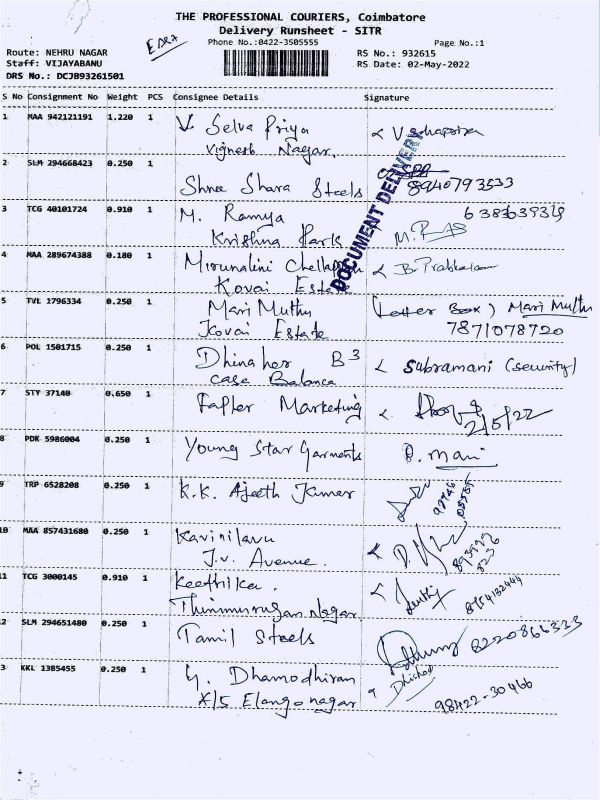 THE PROFESSIONAL COURIERS, Coimbatore
Delivery Runsheet - SITR
Phone No.:0422-3505555
Page No.:1
Route: NEHRU NAGAR
Staff: VIJAYABANU
DRS No.: DCJB93261501
RS No.: 932615
RS Date: 02-May-2022
S No Consignment No Weight PCS Consignee Details Signature
1 MAA 942121191 1.220 1 V. Selva Priya
Vignesh Nagar.
2 SLM 294668423 0.250 1
Shree Shara Steels 8940793533
3 TCG 40101724 0.910 1 M. Ramya
Krishna Park
DOCUMENT DELIVERY
4 MAA 289674388 0.180 1 Mirunalini B. Prabhakaran
Kovai Estate
5 TVL 1796334 0.250 1 Mari Muthu (Letter Box) Mari Muthu
Kovai Estate 7871078720
6 POL 1501715 0.250 1 B3 Subramani (security)
7 STY 37140 0.650 1 Marketing
2/5/22
8 PDK 5986004 0.250 1 Young Star Garments D. Mani
9 TRP 6528208 0.250 1 K.K. Ajeeth Kumar
10 MAA 857431680 0.250 1 Kavinilavu
J.V. Avenue.
11 TCG 3000145 0.910 1 Keerthika.
Thirumurugan Nagar
2 SLM 294651480 0.250 1 Tamil Steels
3 KKL 1385455 0.250 1 G. Dhamodhiran
Elango nagar 98422-30466